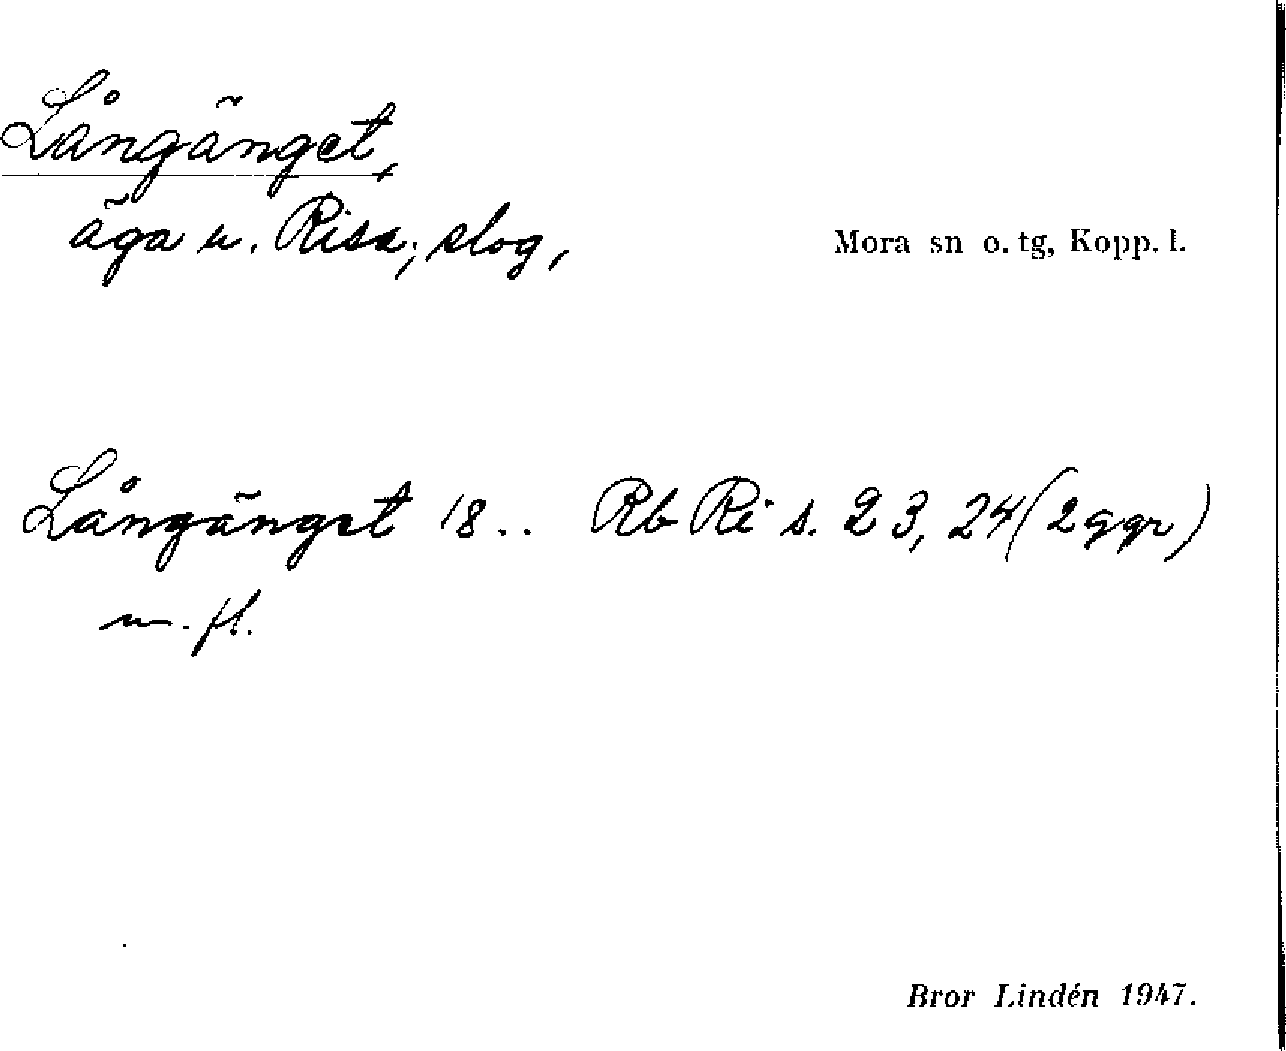 Långänget,
äga u. Risa; slog,
Mora sn o. tg, Kopp. l.
Långänget 18.. Rb Ri s. 23, 24 (2 ggr)
m. fl.
Bror Lindén 1947.